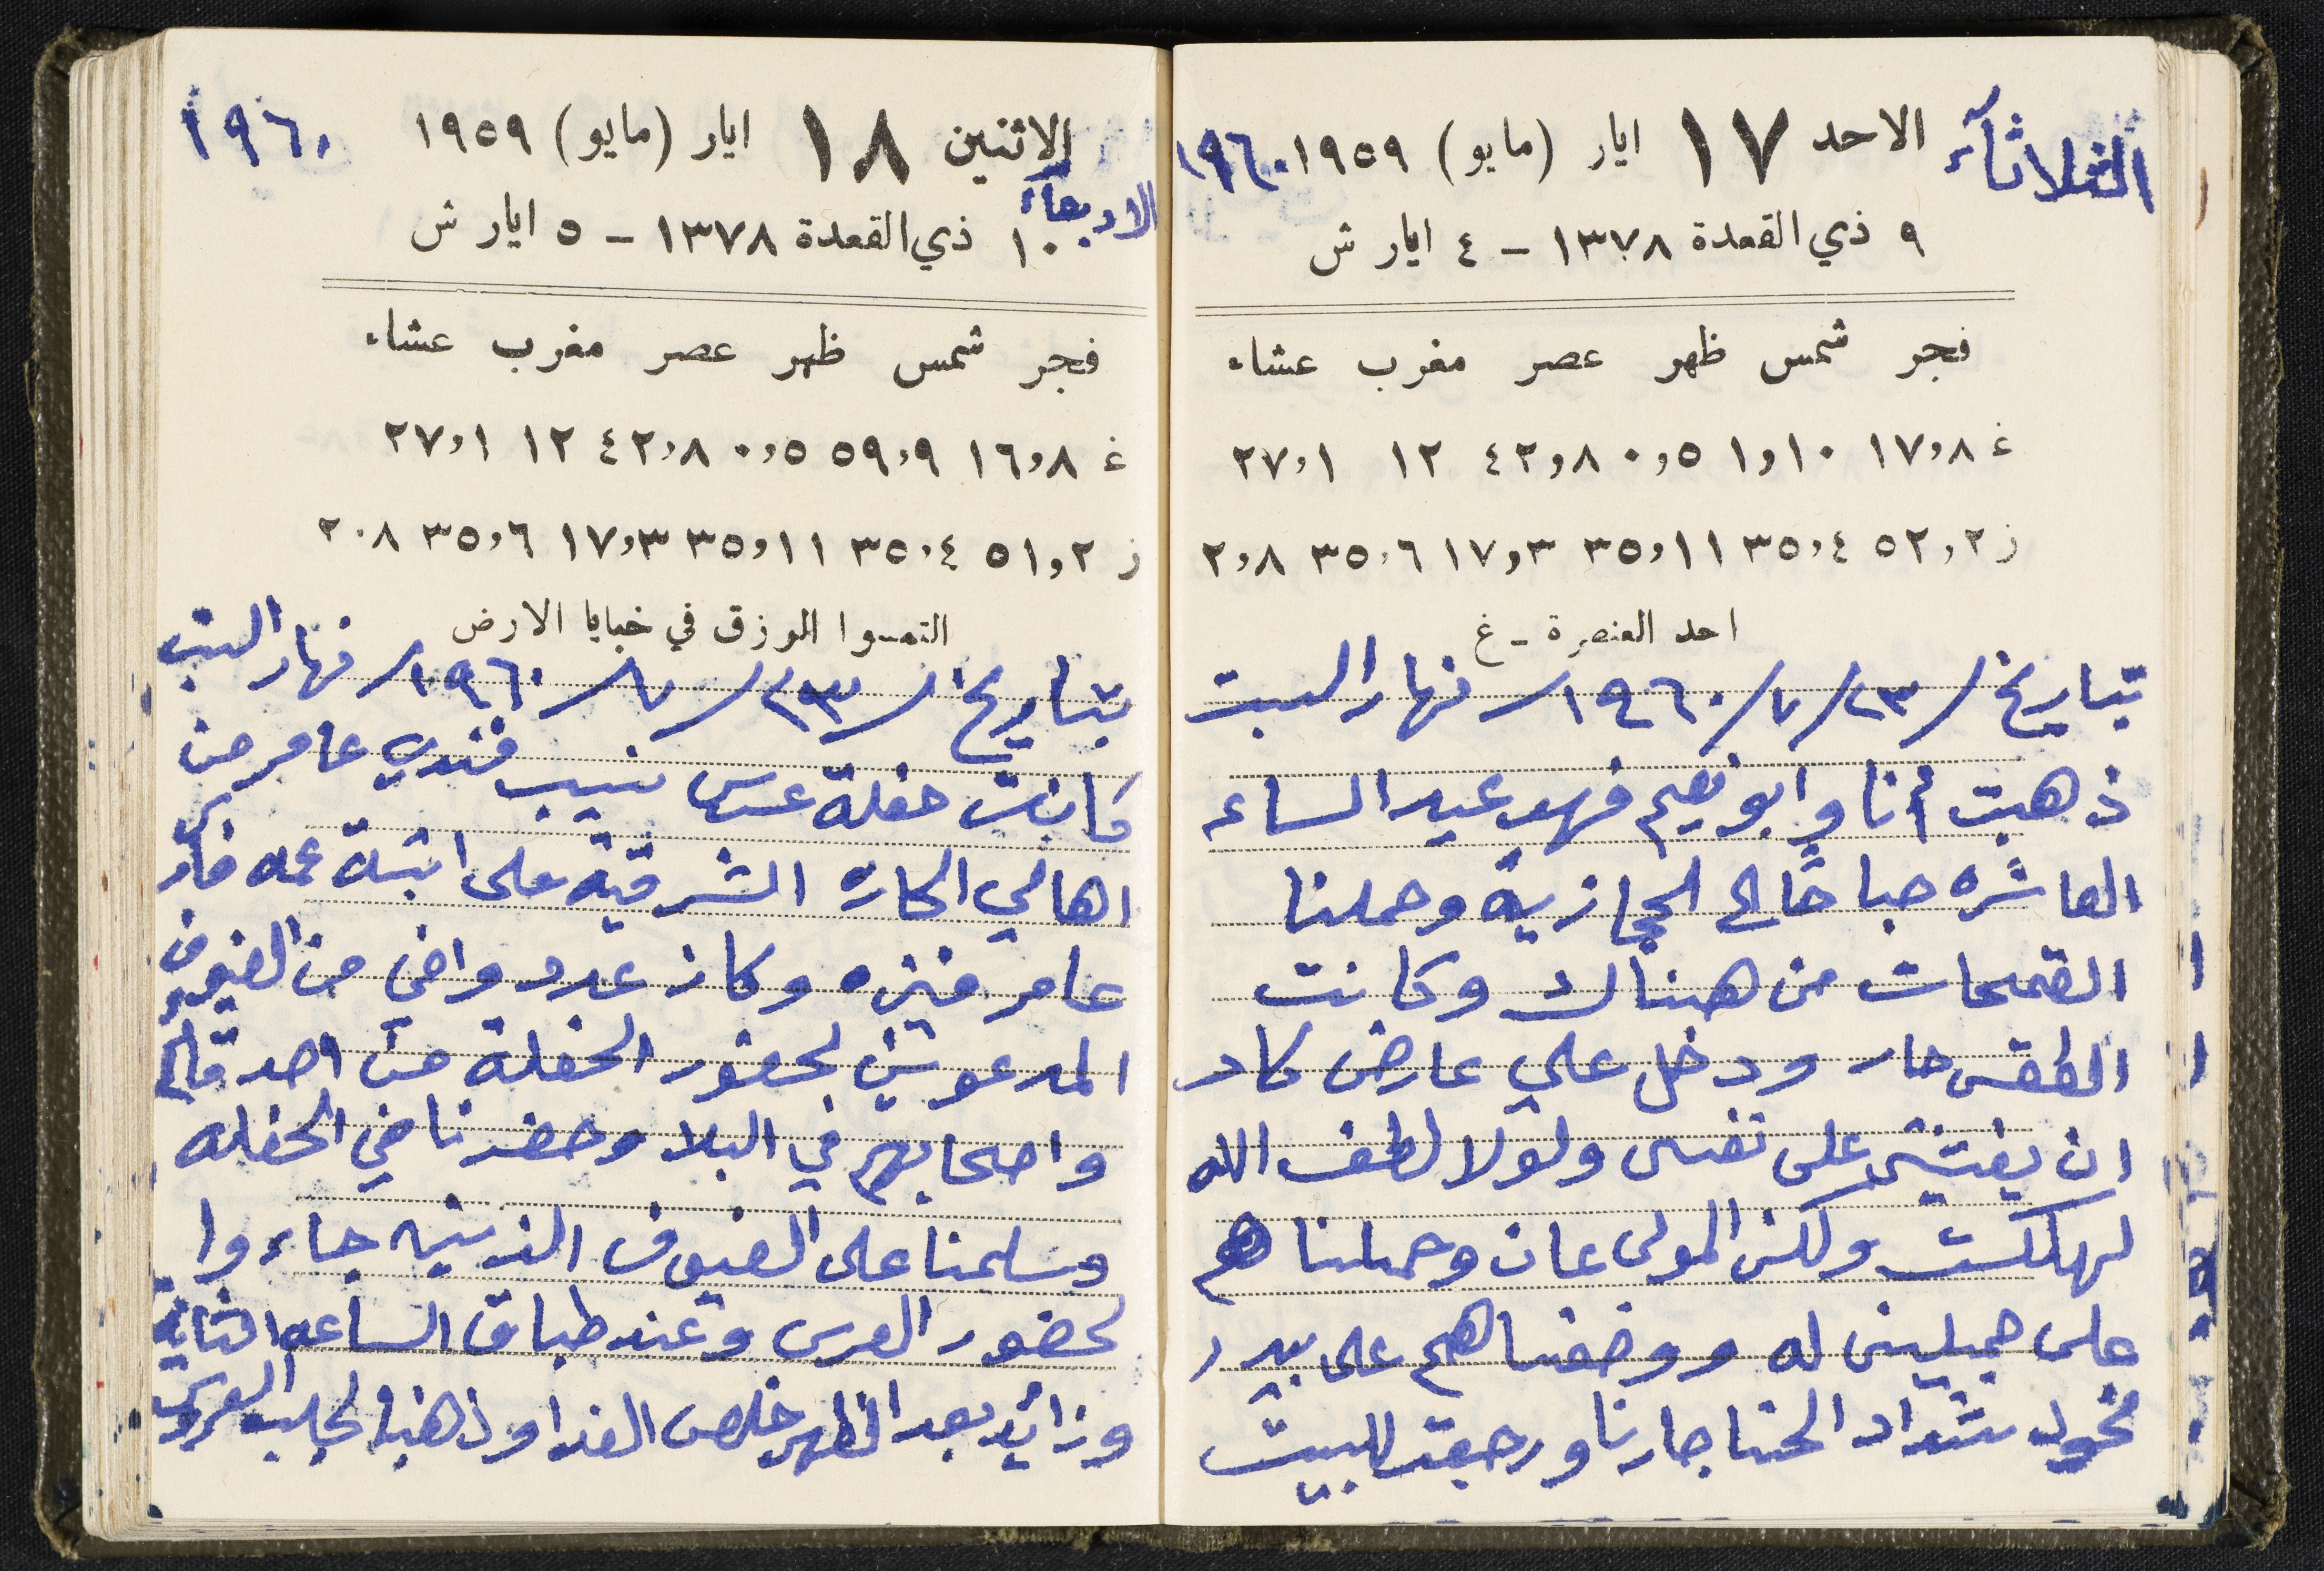 الثلاثآء الاحد ١٧ ايار (مايو) ١٩٥٩ ١٩٦٠
٩ ذي القعدة ١٣٧٨ - ٤ ايار ش
فجر شمس ظهر عصر مغرب عشاء
غ ١٧,٨ ١,١٠ ٠,٥ ٤٢,٨ ١٢ ٢٧,١
ز ٥٢,٢ ٣٥,٤ ٣٥,١١ ١٧,٣ ٣٥,٦ ٢,٨
احد العنصرة - غ
بتاريخ / ٢٣ / ٧ / ١٩٦٠ / نهار السبت
ذهبت أنا وابو نعيم فهد عيد الساعه
العاشره صباحًا الى الحجازية وحملنا
القمحات من هناك وكانت
الطقس حار ودخل علي عارض كاد
ان على نفسي ولولا لطف الله
لهلكت ولكن المولى عان وحملناهم
على جملين له ووضعناهم على بيدر
محمود شداد الحنا جارنا ورجعت للبيت
الاثنين ١٨ ايار (مايو) ١٩٥٩ ١٩٦٠
الاربعآء
١٠ ذي القعدة ١٣٧٨ - ٥ ايار ش
فجر شمس ظهر عصر مغرب عشاء
غ ١٦,٨ ٥٩,٩ ٠,٥ ٤٢,٨ ١٢ ٢٧,١
ز ٥١,٢ ٣٥,٤ ٣٥,١١ ١٧,٣ ٣٥,٦ ٢٠٨
التمسوا الرزق في خبايا الارض
بتاريخ / ٢٣ / ٧ / ١٩٦٠ / نهار السبت
كانت حفلة عرس نسيب فندي عامر من
اهالي الحارة الشرقية على ابنة عمه فارس
عامر منزه وكان عدد وافي من الضيوف
المدعوين لحضور الحفلة من اصدقائهم
واصحابهم في البلاد وحضرنا في الحفله
وسلمنا على الضيوف الذينه جاءوا
لحضور العرس وعند طباق الساعه الثانية
وزائد بعد الظهر خلص الغدا وذهبنا لجلب العروس